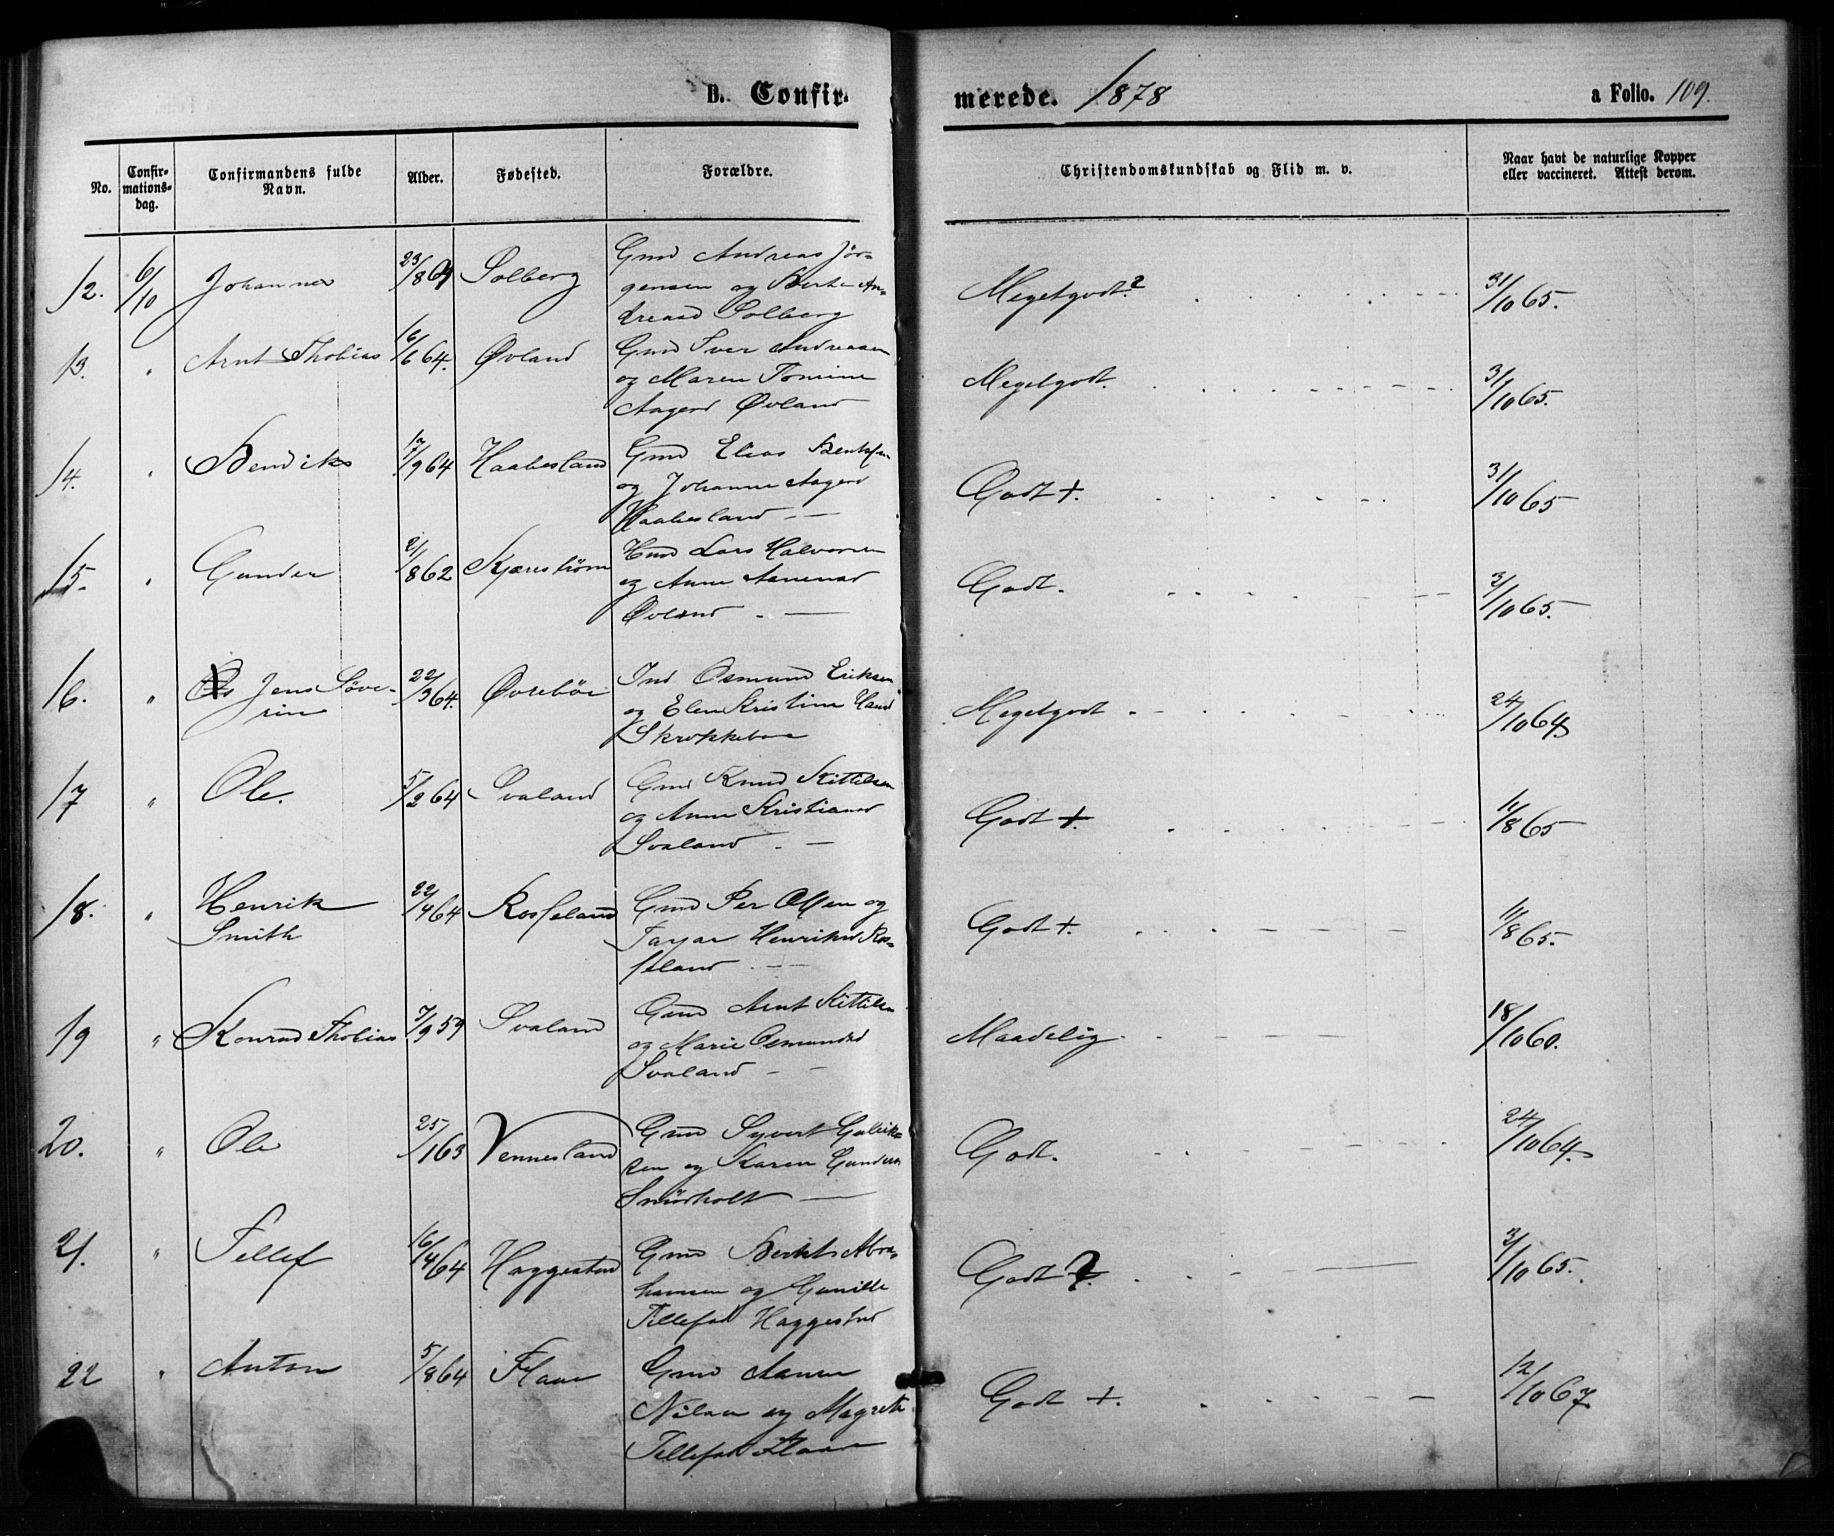 B. Confir-
merede. 1878
a Folio. 109.
No.
Confir-
mations-
dag.
Confirmandens fulde
Navn.
Alder.
Fødested.
Forældre.
Christendomskundskab og Flid m. v.
Naar havt de naturlige Kopper
eller vaccineret. Attest derom.
12. 6/10 Johannes 23/8 64 Solberg Gmd Andreas Jör-
gensen og Berte An-
dreasd Solberg
Megetgodt? 31/10 65.
13. " Arnt Thobias 16/6 64. Øvland Gmd Iver Andreasen
og Maren Tomine
Aagesd Øvland
Megetgodt. 3/10 65.
14. " Bendik 17/9 64 Haabesland Gmd Elias Bentsen
og Johanne Aagesd
Haabesland —
Godt +. 3/10 65
15. " Gunder 2/8 62 Kjærestrøm Hmd Lars Halvorsen
og Anne Aanensd
Øvland . —
Godt. 3/10 65.
16. " Jens Söve-
rin 22/3 64. Øvrebö Ind Osmund Eriksen
og Elen Kristine Hansd
Megetgodt 24/10 64
17 " Ole. 5/2 64 Svaland Gmd Knud Kittilsen
og Anne Kristiansd
Svaland . —
Godt +. 11/8 65
18. " Henrik
Smith 22/4 64 Rosseland Gmd Per Olsen og
Henriksd Ros-
seland —
Godt +. 11/8 65.
19 " Konrad Thobias 7/9 59 Svaland Gmd Arnt Kittilsen
og Marie Osmundsd
Svaland —
Maadelig 18/10 60.
20. " Ole 25/1 63 Vennesland Gmd Syvert Gulik-
sen og Karen Gundersd
Smürholt —
Godt. 24/10 64.
21. " Tellef 16/4 64 Haggestad Gmd Abra-
hamsen og Gunilde
Tellefsd Haggestad
Godt ? 3/10 65.
22 " Anton 5/8 64 Flaae Gmd Aanen
Nilsen og Magrete
Tellefsd Flaae
Godt +. 12/10 67.